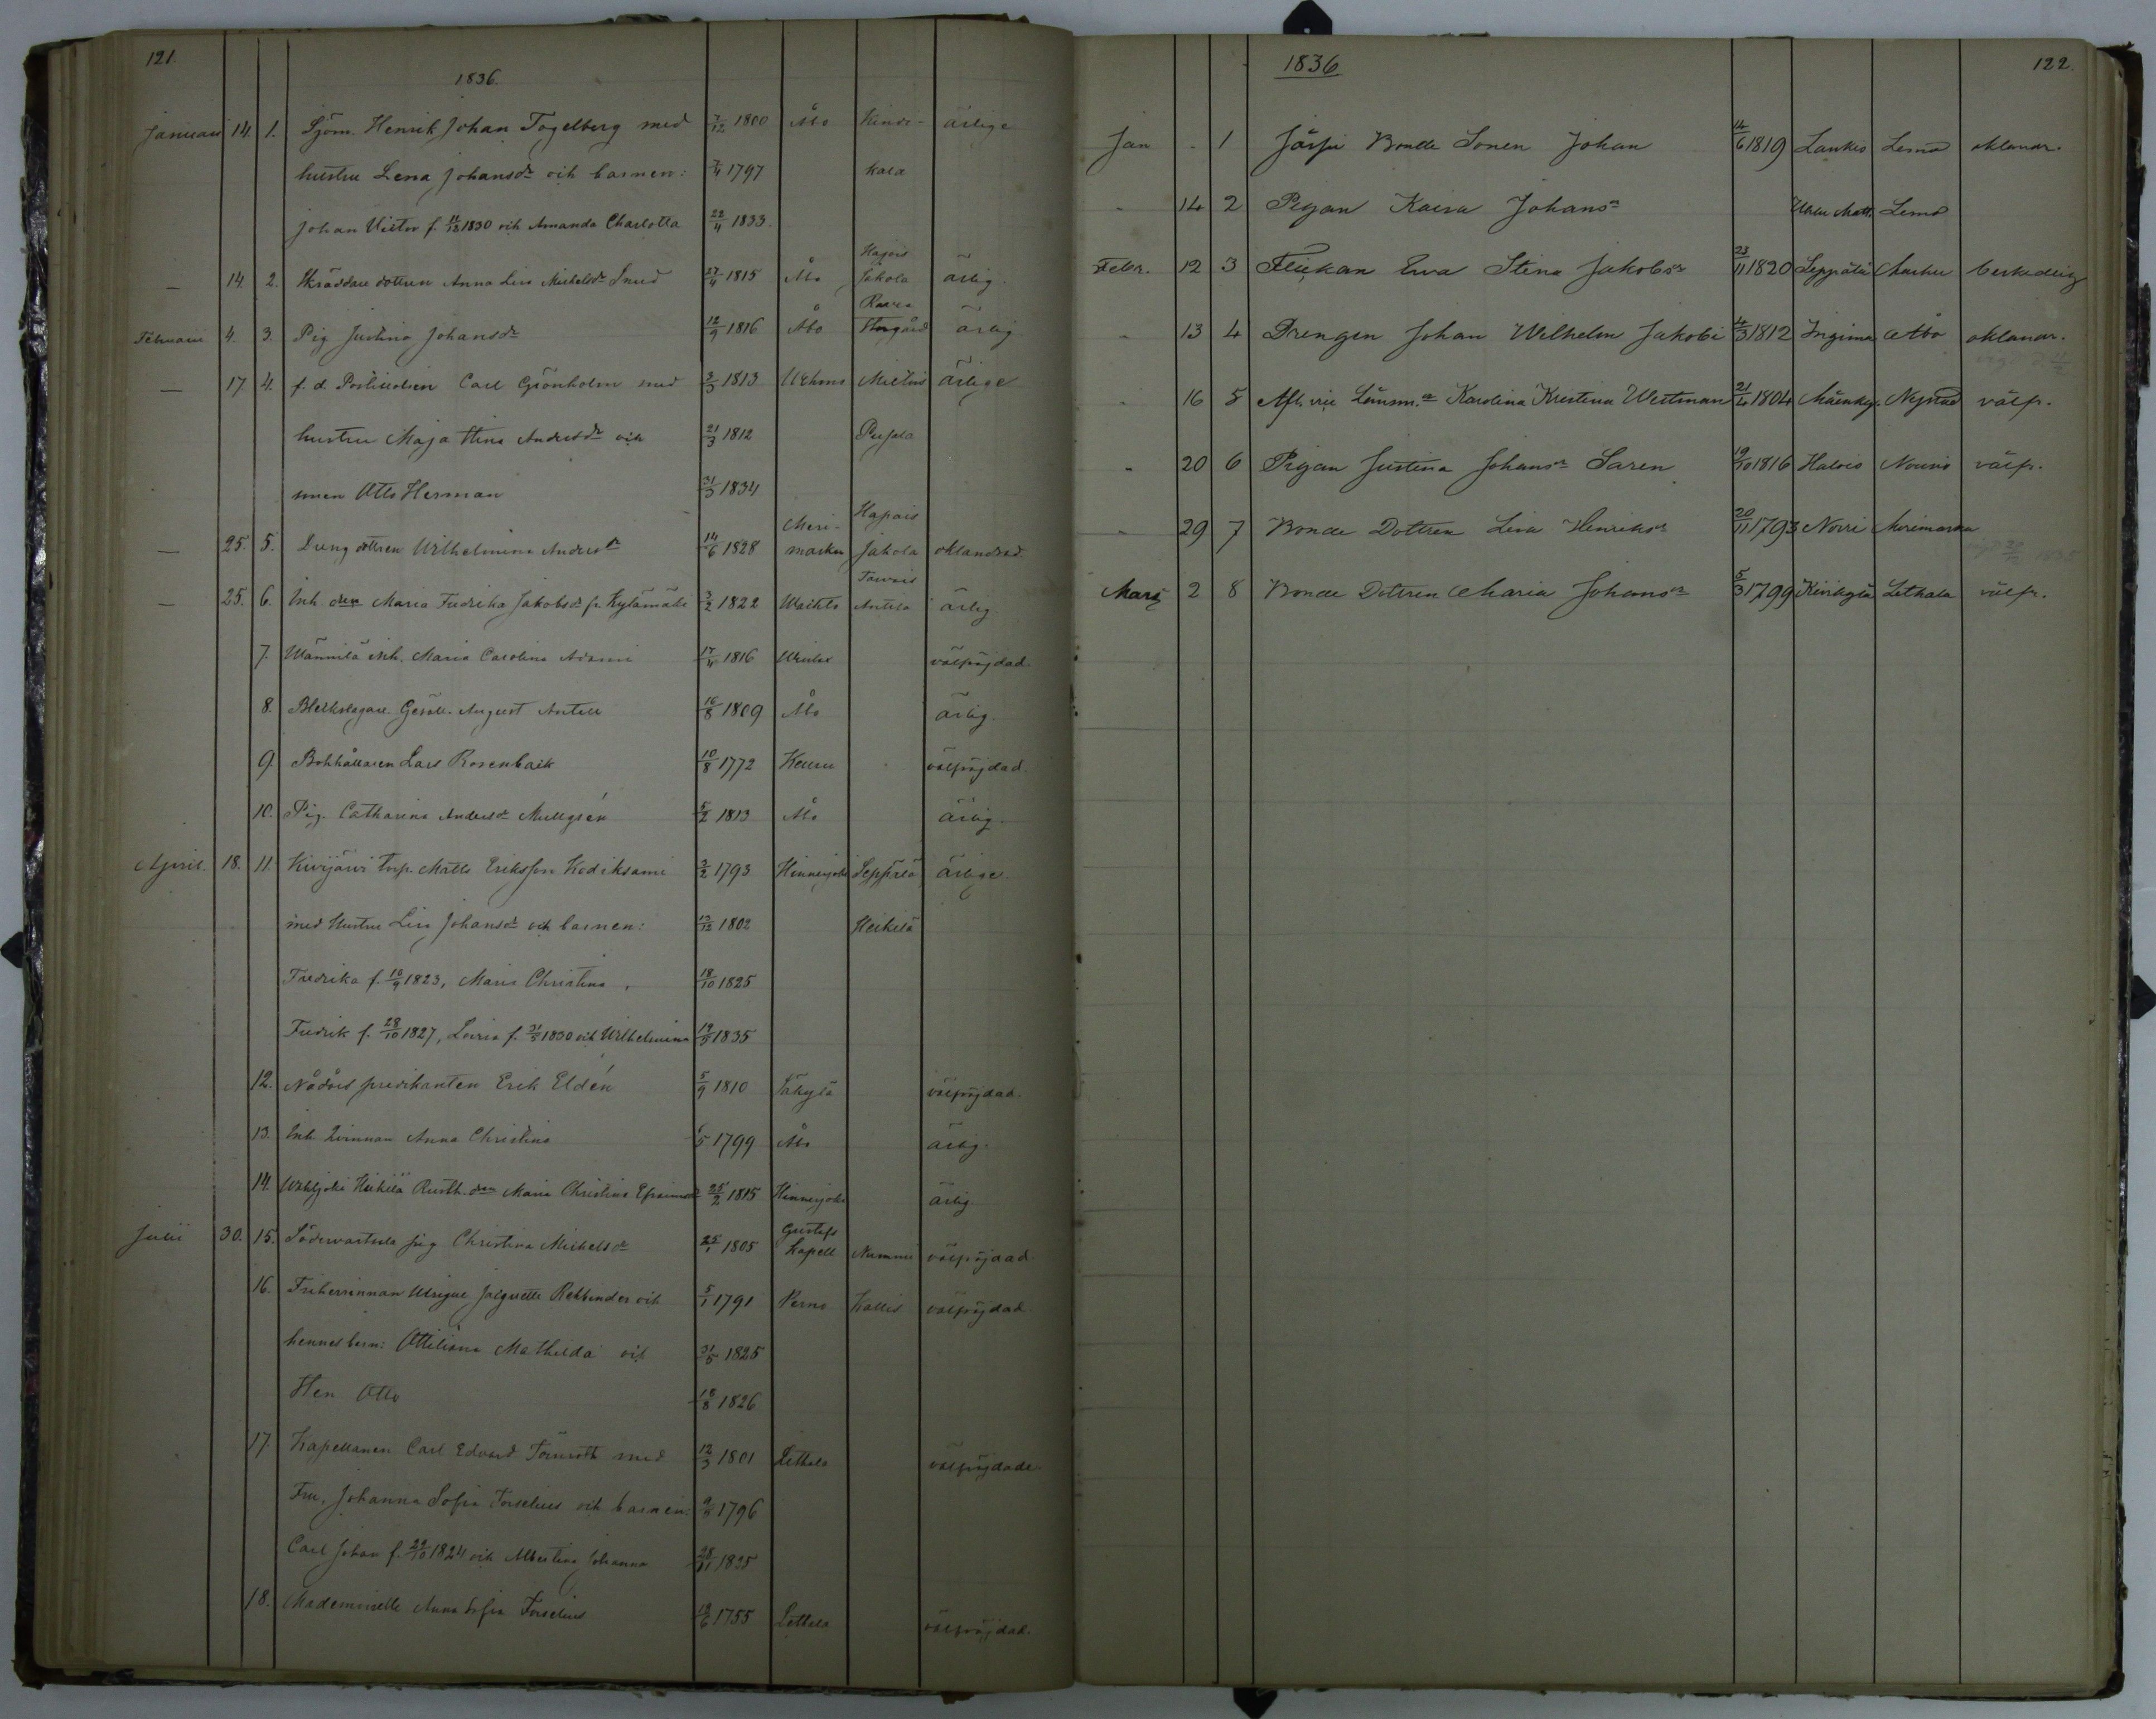 121.
1836.
Januari 14. 1. Sjöm. Henrik Johan Fogelberg med 7/12 1800 Åbo Kinde- ärlige
hustru Lena Johansdr och barnen: 7/4 1797 kala
Johan Victor f. 1830 och Amanda Charlotta 22/4 1833.
Hapois
— 14. 2. Skräddare dottren Anna Lisa Michelsdr Smed 27/4 1815 Åbo Jakola ärlig.
Raaria
Februari 4. 3. Pig Justina Johansdr 12/9 1816 Åbo ärlig
— 17. 4. f. d. Postiljonen Carl Grönholm med 3/3 1813 Mietois ärlige
hustru Maja Stina Andersdr och 21/3 1812 Pujala
sonen Otto Herman 31/3 1834
Meri- Hapois
— 25. 5. Dreng dottren Wilhelmina Andersdr 14/6 1828 masku Jakola oklandrad
Tawois
— 25. 6. Inh. dren Maria Fredrika Jakobsdr fr. Kylämäki 3/2 1822 Wachto Anttila ärlig.
7. Wännilä inh. Maria Carolina Adami 17/4 1816 välfrejdad.
8. Bleckslagare Gesäll. August Antell 16/8 1809 Åbo ärlig.
9. Bokhållaren Lars Rosenback 10/8 1772 Keuru välfrejdad
10. Pig. Catharina Andersdr Mullgrén 5/2 1813 Åbo ärlig.
April. 18. 11. Kivijärvi Torp. Matts Eriksson Kodiksami 3/2 1793 Hinnerjoki Seppälä ärlige.
med Hustru Lisa Johansdr och barnen: 13/12 1802 Heikilä
Fredrika f. 10/9 1823, Maria Christina, 18/10 1825
Fredrik f. 28/10 1827, Lovisa f. 31/5 1830 och Wilhelmina 19/5 1835
12. Nådårs predikanten Erik Eldén 5/9 1810 Säkylä välfrejdad.
13. Inh. Qvinnan Anna Christina 1799 Åbo ärlig.
14. Heikilä Rusth. dren Maria Christina Efraimsdr 25/2 1815 Hinnerjoki ärlig
Gustafs
Julii 30. 15. Södervartsala pig Christina Michelsdr 1805 Kapell Nummi välfrejdad.
16. Friherrinnan Ulrique Jaquette Rehbinder och 5/1 1791 Perno Kallis välfrejdad
hennes barn: Ottiliana Mathilda och 31/5 1825
Herr Otto 18/8 1826
17. Kapellanen Carl Edvard Törnroth med 12/3 1801 Letala välfrejdade.
Fru, Johanna Sofia Forselius och barnen: 1796
Carl Johan f. 22/10 1824 och Albertina Johanna 28/11 1825
18. Mademoiselle Anna Sofia Forselius 19/6 1755 Letala välfrejdad.
1836
122.
Jan . 1 Järppi Bonde Sonen Johan 14/6 1819 Lankis Lemo oklandr.
" 14 2 Pigan Kaisa Johansr Lemo
Febr. 12 3 Flickan Eva Stina Jakobsr 23/11 1820 Seppälä Masku beskedlig
" 13 4 Drengen Johan Wilhelm Jakobi 4/3 1812 Åbo oklandr.
" 16 5 Karolina Kristina Westman 21/4 1804 Nystad välfr.
" 20 6 Pigan Justina Johansr Saren 19/10 1816 Halois Nousis välfr.
" 29 7 Bonde Dottren Lisa Henriksr 20/11 1793 Norri Merimasku
Mars 2 8 Bonde Dottren Maria Johansr 5/3 1799 Letala välfr.